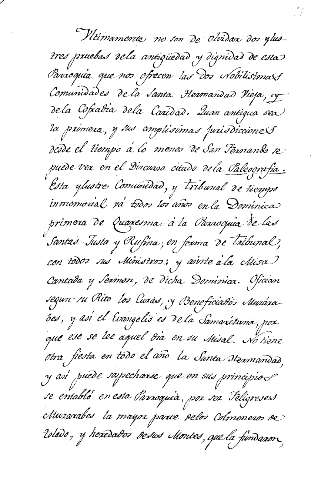 Ultimamente no son de olvidar dos ylus-
tres pruebas dela antigüedad y dignidad de esta
Parroquia que nos ofrecen las dos Nobilisimas
Comunidades de la Santa Hermandad Vieja, y
de la Cofradia de la Caridad. Quan antigua sea
la primera, y sus amplisimas jurisdicciones
desde el tiempo à lo menos de San Fernando se
puede ver en el Discurso citado de la Paleografia.
Esta ylustre Comunidad, y Tribunal de tiempo
inmemorial và todos los años en la Dominica
primera de Quaresma à la Parroquia de las
Santas Justa y Rufina, en forma de Tribunal,
con todos sus Ministros; y asiste à la Misa
Cantada y Sermon, de dicha Dominica. Ofician
segun su Rito los Curas, y Beneficiados Muzara-
bes, y asi el Evangelio es de la Samaritana, por
que ese se lee aquel dia en su Misal. No tiene
otra fiesta en todo el año la Santa Hermandad,
y asi puede sospecharse que en sus principios
se entabló en esta Parroquia, por ser Feligreses
Muzarabes la mayor parte delos Colmeneros de
Toledo, y heredados de sus Montes, que la fundaron,